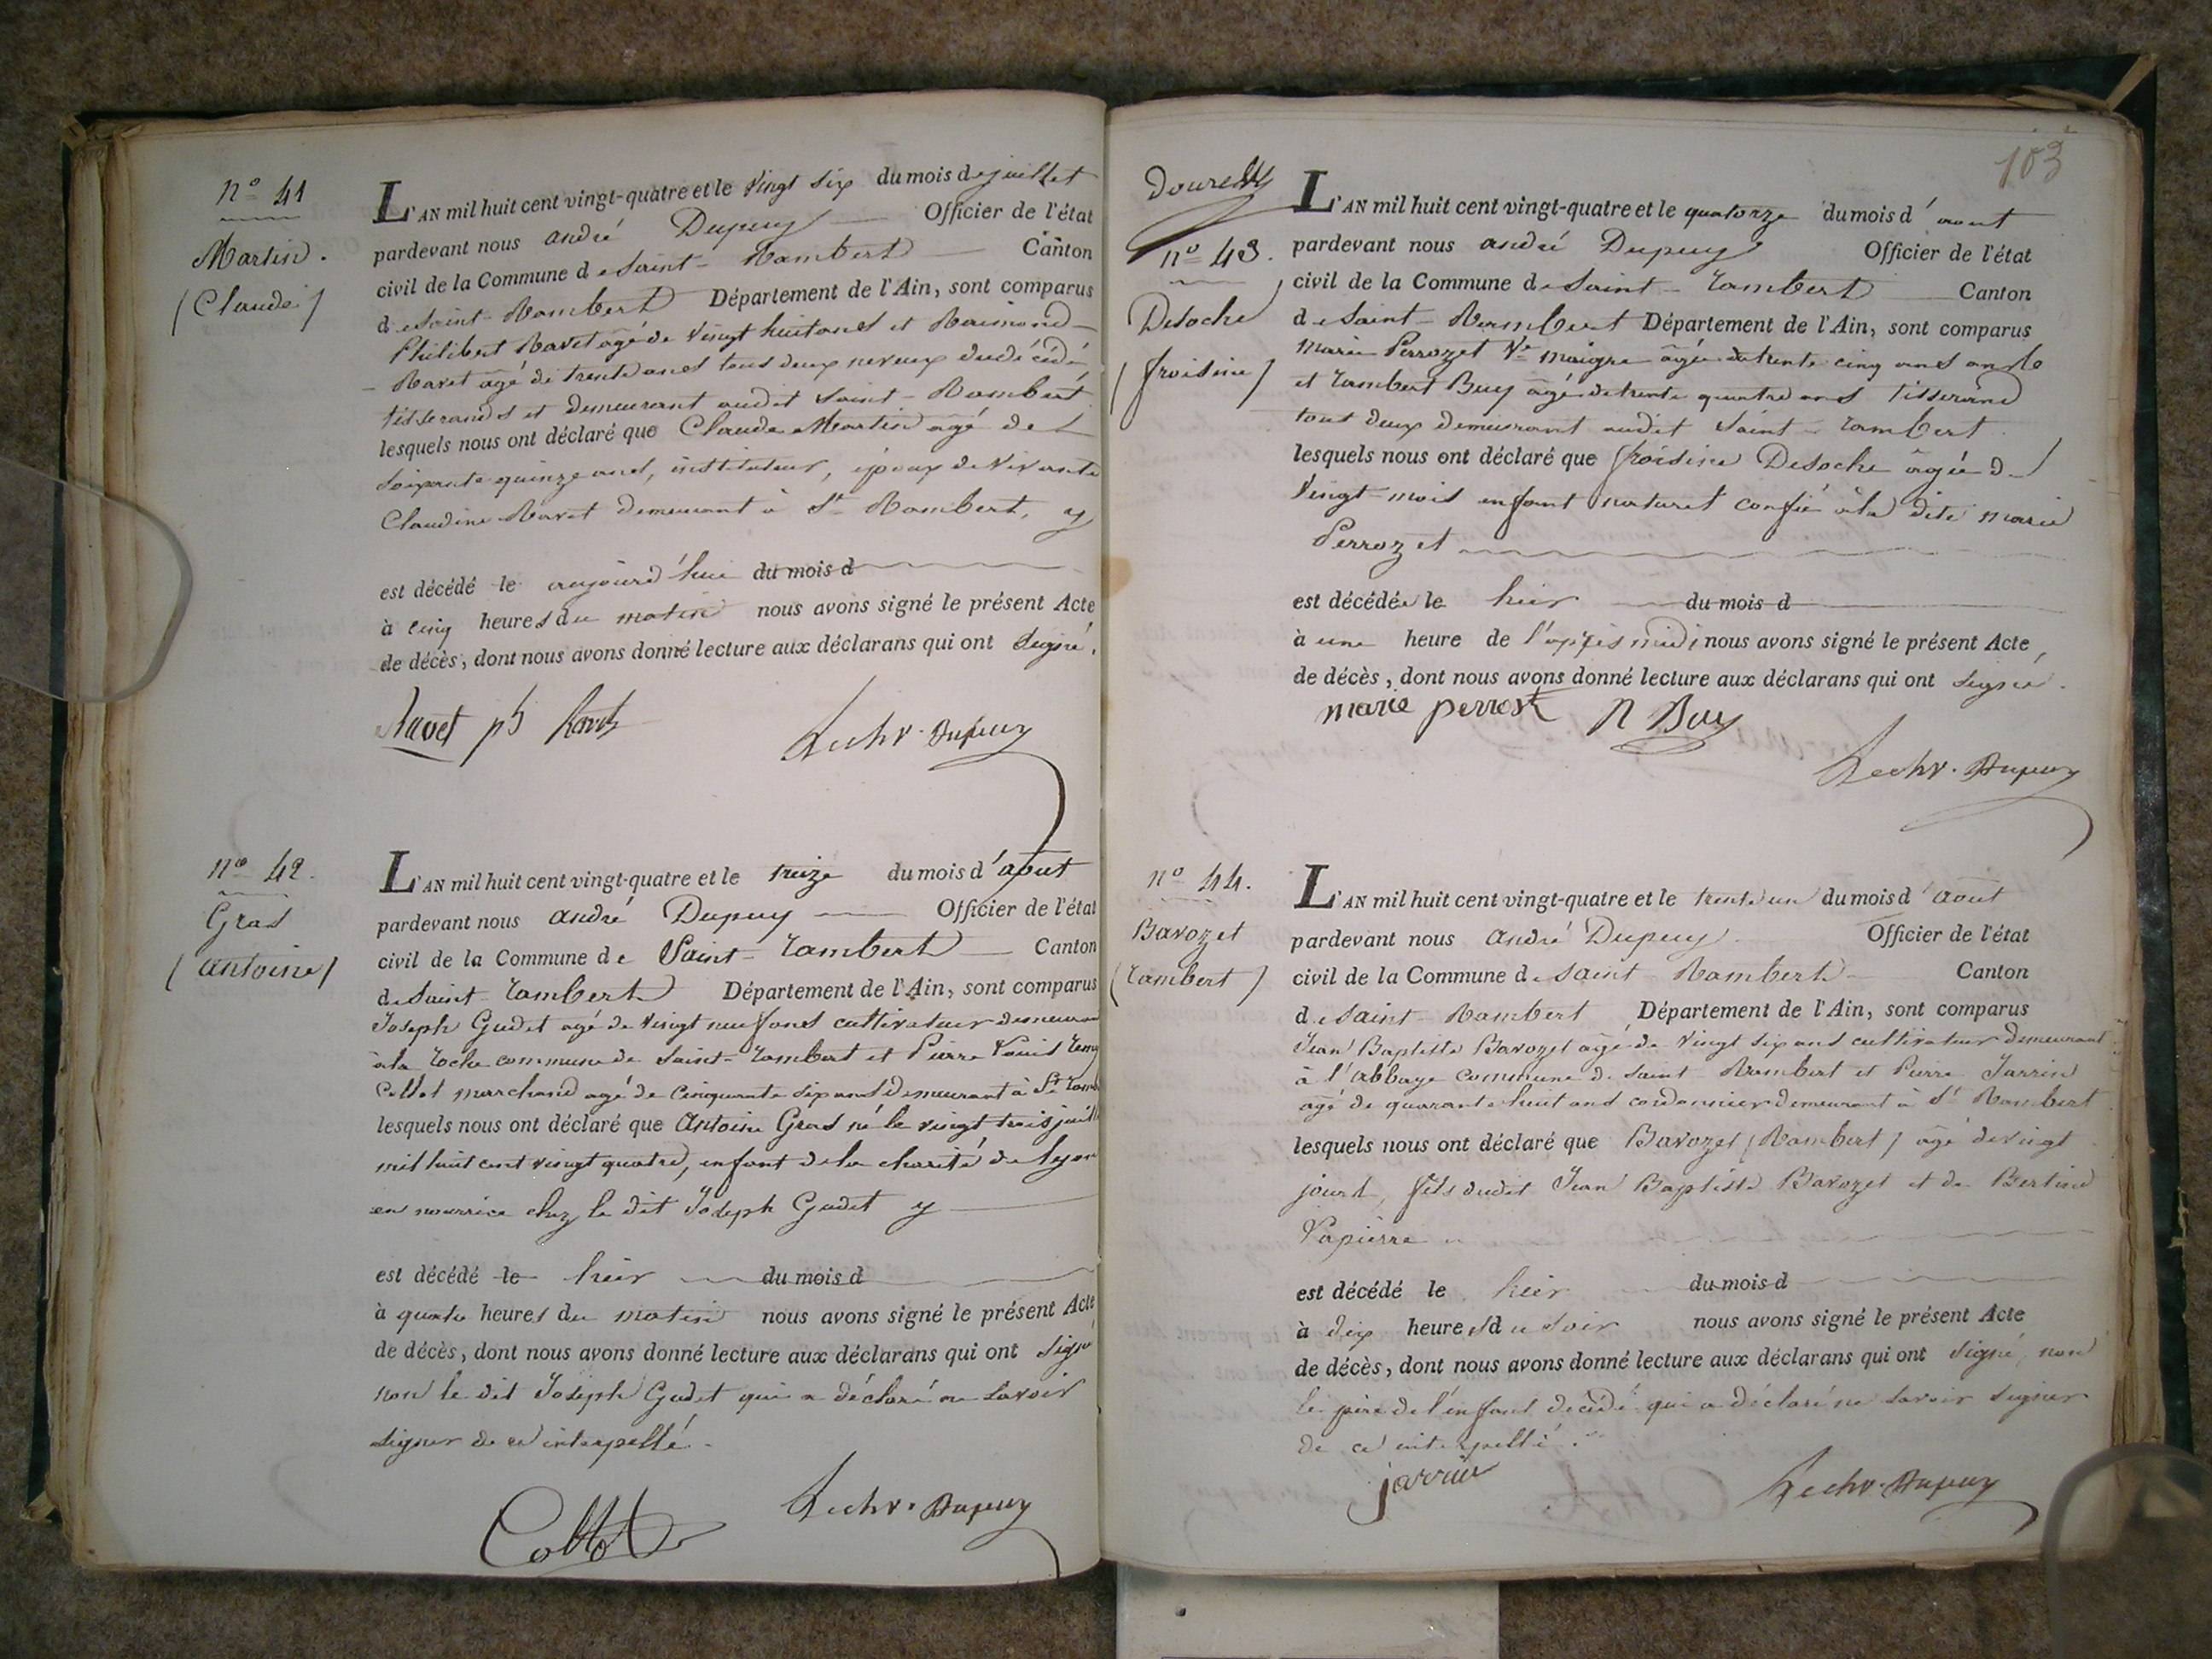 nº 41
Martin.
(Claude)
L'AN mil huit cent vingt-quatre et le vingt six du mois de juillet
pardevant nous andré Dupuy Officier de l'état
civil de la Commune de Saint-Rambert Canton
de Saint-Rambert Département de l'Ain, sont comparus
Philibert Ravet agé de vingt huit ans et Raimond
Ravet âgé de trente ans tous deux neveux du décédé
tisserands et demeurant audit Saint-Rambert
lesquels nous ont déclaré que Claude Martin agé de
soixante quinze ans, instituteur, époux de vivante
Claudine Ravet demeurant à St Rambert, y
est décédé le aujourd'hui du mois d
à cinq heures du matin nous avons signé le présent Acte
de décès, dont nous avons donné lecture aux déclarans qui ont signé.
Ravet ph Ravet
Lechv. Dupuy
nº 42.
Gras
(antoine)
L'AN mil huit cent vingt-quatre et le treize du mois d'aout
pardevant nous andré Dupuy Officier de l'état
civil de la Commune de Saint-Rambert Canton
de Saint-Rambert Département de l'Ain, sont comparus
Joseph Gudet agé de vingt neuf ans cultivateur demeurant
à la Roche commune de Saint-Rambert et Pierre Louis Remy
Collot marchand agé de cinquante six ans demeurant à St Ramb
lesquels nous ont déclaré que Antoine Gras né le vingt trois juill
mil huit cent vingt quatre, enfant de la charité de lyon
en nourrice chez le dit Joseph Gudet y
est décédé le hier du mois d
à quatre heures du matin nous avons signé le présent Acte
de décès, dont nous avons donné lecture aux déclarans qui ont signé
non le dit Joseph Gudet qui a déclaré ne savoir
signer de ce interpellé.
Collot
Lechv. Dupuy
103
nº 43.
Desoche
(froisine)
L'AN mil huit cent vingt-quatre et le quatorze du mois d'aout
pardevant nous andré Dupuy Officier de l'état
civil de la Commune de Saint-Rambert Canton
de Saint-Rambert Département de l'Ain, sont comparus
Marie Perrozet Ve maigre âgée de trente cinq ans
et Rambert Buy âgé de trente quatre ans tisserand
tous deux demeurant audit Saint-Rambert
lesquels nous ont déclaré que froisine Desoche âgée de
vingt mois enfant naturel confié à la dite marie
Perrozet
est décédée le hier du mois d
à une heure de l'après midi nous avons signé le présent Acte
de décès, dont nous avons donné lecture aux déclarans qui ont signé.
marie perroset R Buy
Lechv. Dupuy
nº 44.
Bavozet
(Rambert)
L'AN mil huit cent vingt-quatre et le trente un du mois d'aout
pardevant nous andré Dupuy Officier de l'état
civil de la Commune de Saint Rambert Canton
de Saint-Rambert Département de l'Ain, sont comparus
Jean Baptiste Bavozet agé de vingt six ans cultivateur demeurant
à l'abbaye commune de Saint-Rambert et Pierre Jarrin
agé de quarante huit ans cordonnier demeurant à St Rambert
lesquels nous ont déclaré que Bavozet (Rambert) agé de vingt
jours, fils dudit Jean Baptiste Bavozet et de Bertine
Papierre
est décédé le hier du mois d
à dix heures du soir nous avons signé le présent Acte
de décès, dont nous avons donné lecture aux déclarans qui ont signé, non
le père de l'enfant décédé qui a déclaré ne savoir signer
de ce interpellé.
jarrin
Lechv. Dupuy